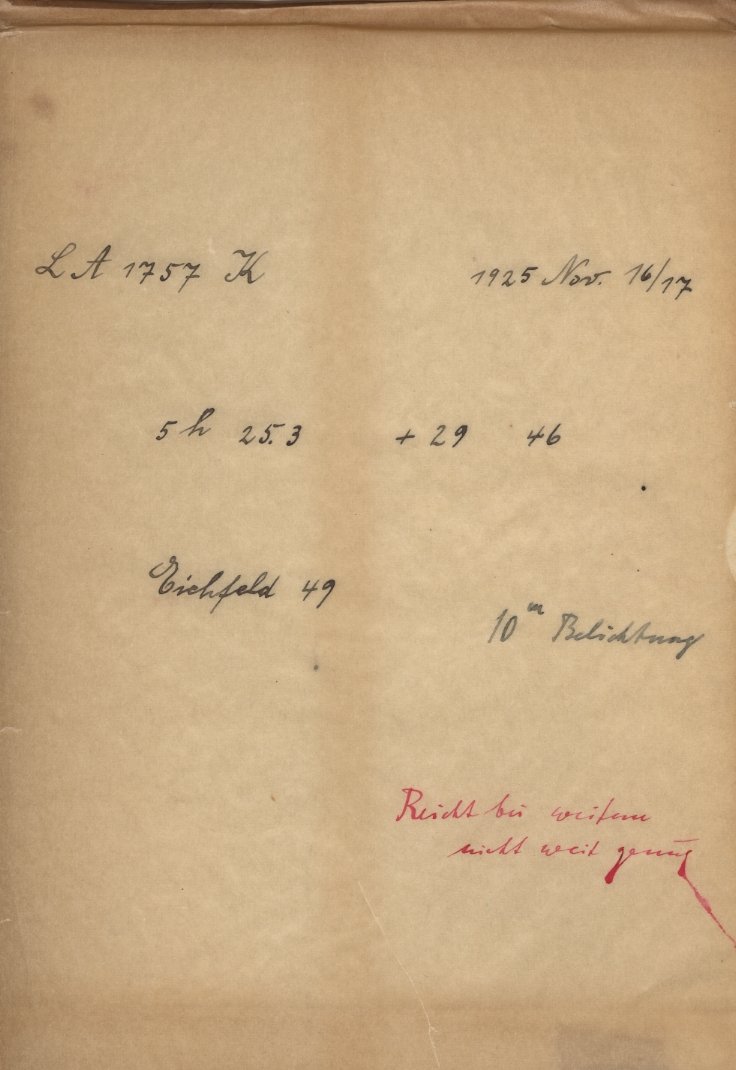 LA 1757 K 1925 Nov. 16/17
5 h 25.3 + 29 46
Eichfeld 49
10ᵐ Belichtung
Reicht bei weitem
nicht weit genug